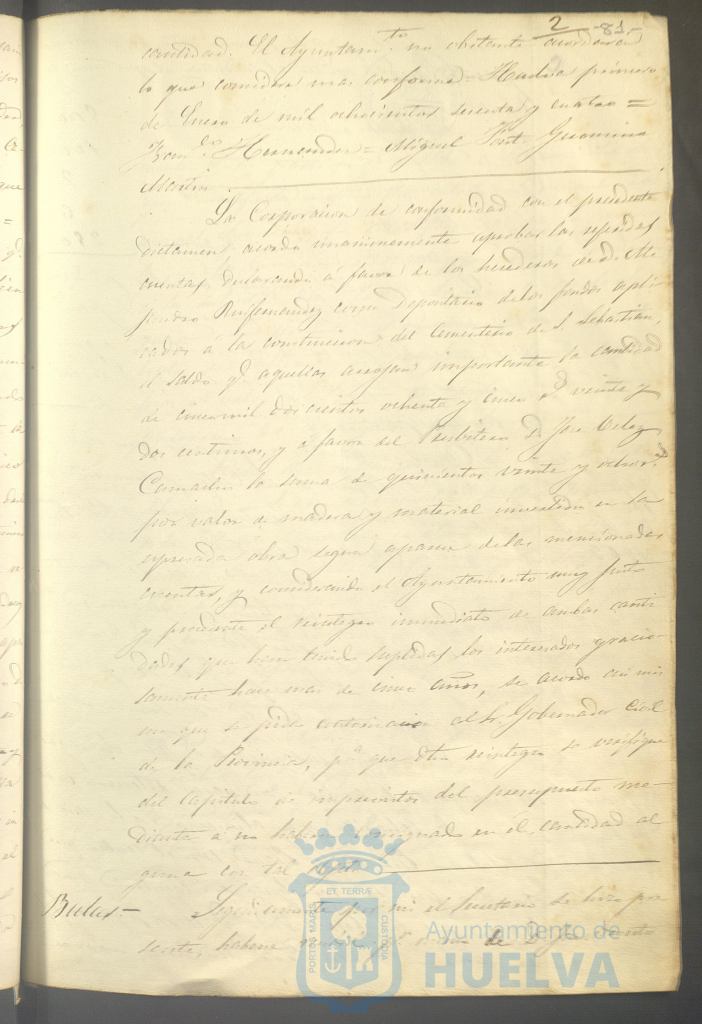 2 -81,-
cantidad. El Ayuntamto no obstante acordará
lo que considere mas conforme = Huelva primero
de Enero de mil ochocientos sesenta y cuatro =
Hernandez = Miguel
Martin
La Corporacion de conformidad con el precedente
dictamen, acordó unanimemente aprobar las repetidas
cuentas, declarando á favor de los herederos de D.
como Depositario de los fondos apli
cados á la construccion del Cementerio de S. Sebastian,
el saldo q. aquellas arrojan importante la cantidad
de cinco mil doscientos ochenta y cinco veinte y
dos centimos, y á favor del Presbitero D. José Velez
la suma de quinientos veinte y ocho
por valor de madera y material invertido en la
espresada obra segun aparece de las mencionadas
cuentas, y considerando el Ayuntamiento muy justo
y procedente el reintegro inmediato de ambas canti
dades que suplidas los interesados gracio-
samente hace mas de cinco años, se acordó asi mis
mo que se pida autorizacion al Sr. Gobernador Civil
de la Provincia, pa que reintegro se verifique
del Capitulo de imprevistos del presupuesto me-
diante á no haber consignada en él, cantidad al
guna con tal objeto
Bulas- Seguidamente por mi el Secretario se hizo pre
sente, haberse
PORTUS MARIS
ET TERRÆ
CUSTODIA
Ayuntamiento de
HUELVA